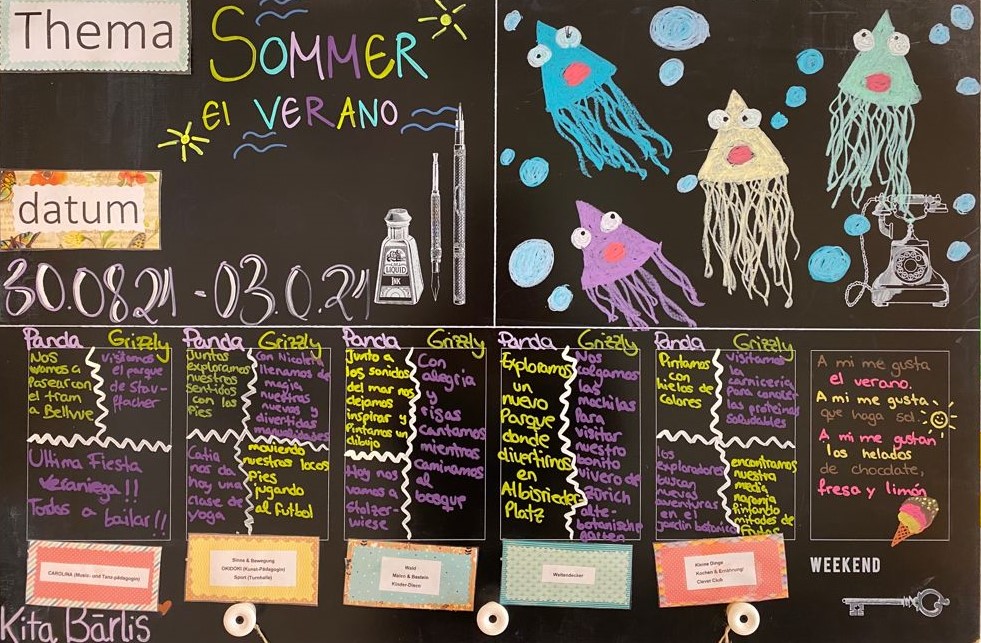 Thema
SOMMER
El VERANO
datum
LIQUID
INK
30.0821 - 03.0.21
Panda
Grizzly
Nos
vamos a
Pasear con
el tram
a Bellvue
Visitamos
el parque
de Stau-
ffacher
Ultima Fiesta
Veraniega!!
Todos a bailar!!
Panda
Grizzly
Juntos
exploramos
nuestros
Sentidos
con los
Pies
Con Nicoletta
llenamos de
magia
nuestras
nuevas y
divertidas
manualidades
Catia
nos da
hoy una
clase de
yoga
moviendo
nuestros locos
Pies
jugando
al futbol
Panda
Grizzly
Junto a
los sonidos
del mar nos
dejamos
inspirar y
Pintamos un
dibujo
Hoy nos
vamos a
Stolzer-
wiese
Con
alegria
y
risas
cantamos
mientras
caminamos
al
bosque
Panda
Grizzly
Exploramos
un
nuevo
Parque
donde
divertirnos
en
Albisrieder
Platz
Nos
colgamos
las
mochilas
Para
visitar
nuestro
bonito
vivero de
zürich
alte-
botanische
garten
Panda
Grizzly
Pintamos
con
hielos de
colores
Visitamos
la
carniceria
Para conocer
las proteinas
saludables
los
exploradores
buscan
nuevas
aventuras
en el
jardin botanico
encontramos
nuestra
media
naranja
Pintando
mitades de
frutas
A mi me gusta
el verano.
A mi me gusta
que haga sol.
A mi me gustan
los helados
de chocolate,
fresa y limón
CAROLINA (Musik- und Tanz-pädagogin)
Sinne & Bewegung
OKIDOKI (Kunst-Pädagogin)
Sport (Turnhalle)
Wald
Malen & Basteln
Kinder-Disco
Weltendecker
Kleine Dinge
Kochen & Ernährung/
Clever Club
WEEKEND
Kita Bärlis